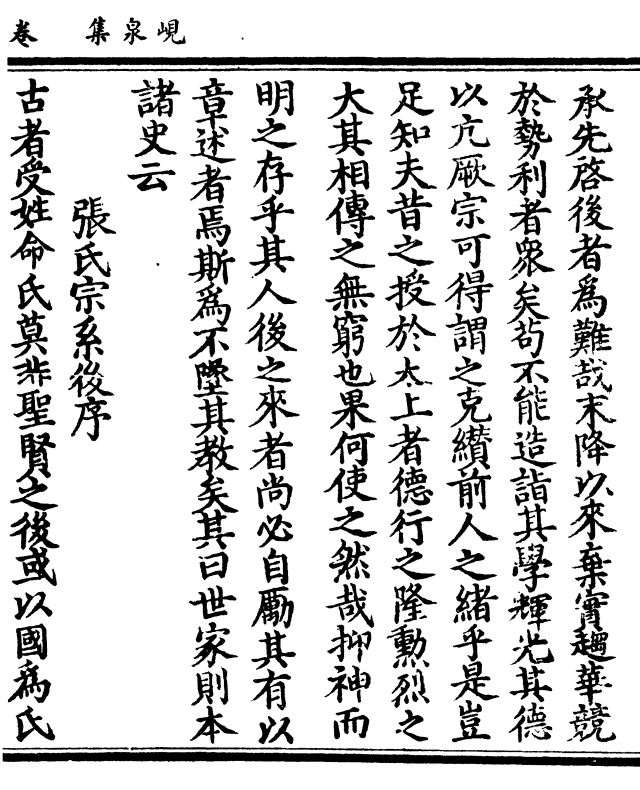 峴泉集 卷
承先啓後者爲難哉末降以來棄實趨華競
於勢利者衆矣苟不能造詣其學輝光其德
以亢厥宗可得謂之克纘前人之緒乎是豈
足知夫昔之授於太上者德行之隆勳烈之
大其相傳之無窮也果何使之然哉抑神而
明之存乎其人後之來者尚必自勵其有以
章述者焉斯爲不墜其教矣其曰世家則本
諸史云
張氏宗系後序
古者受姓命氏莫非聖賢之後或以國爲氏